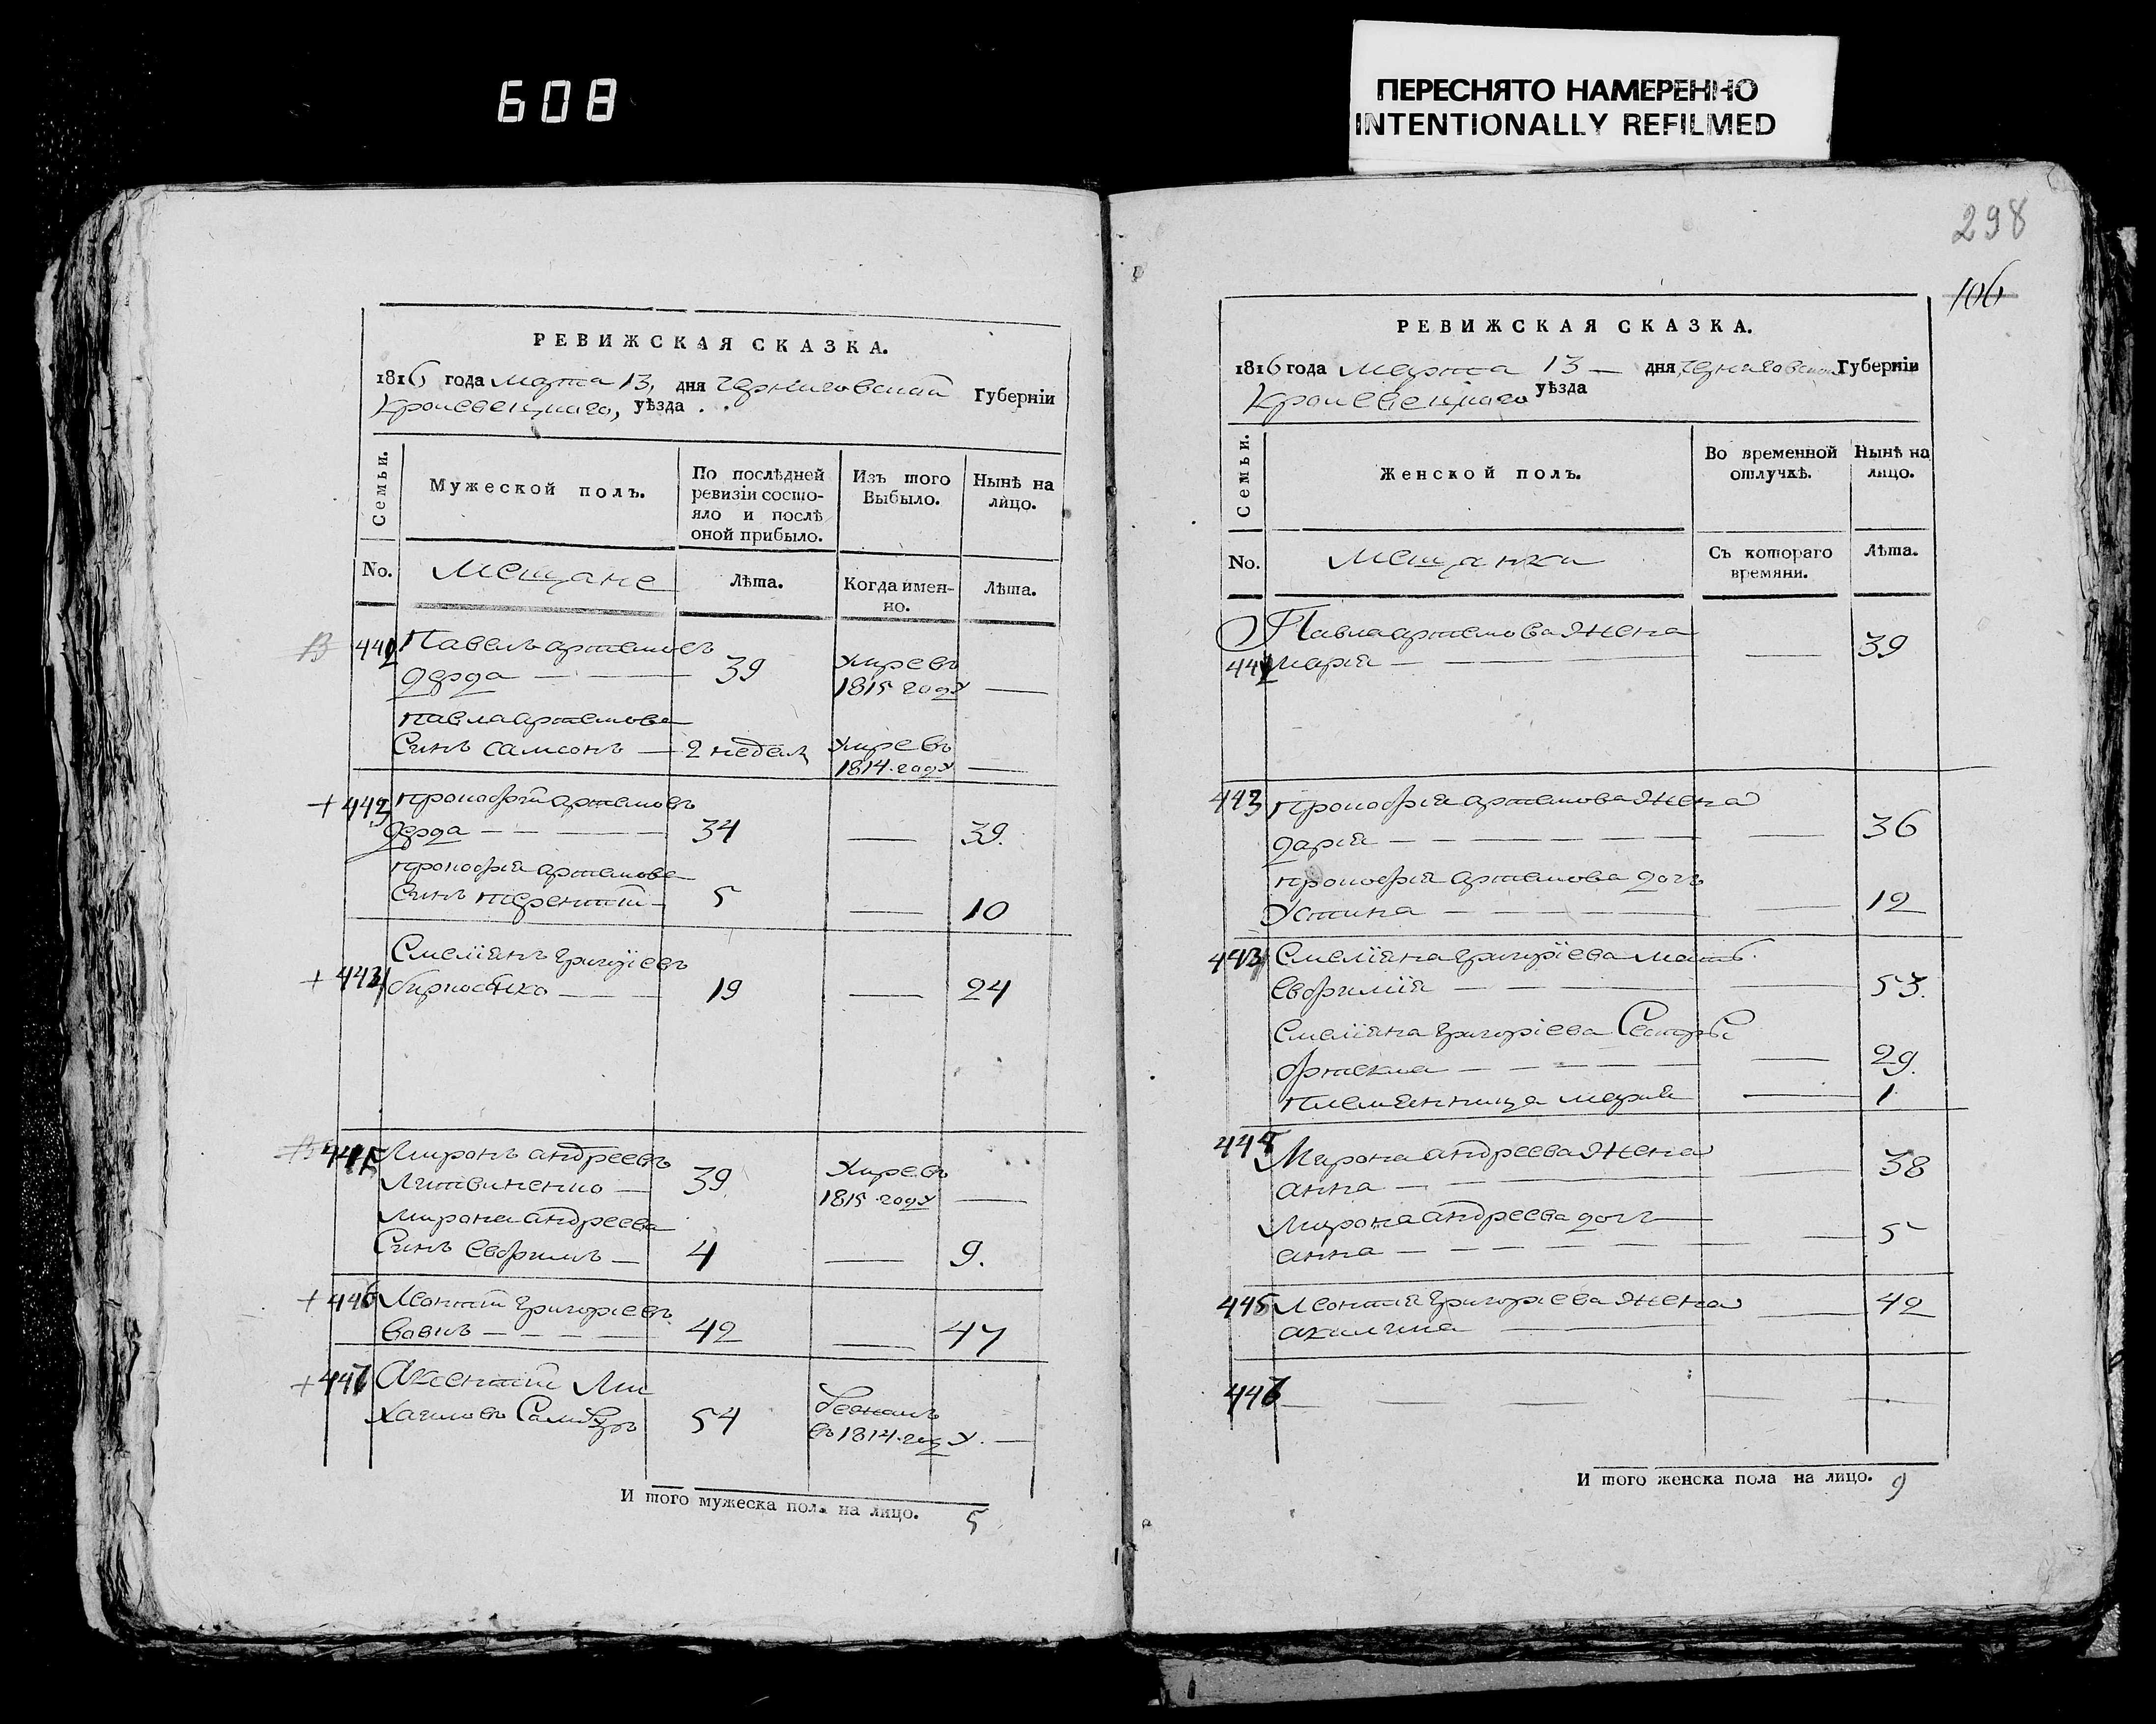 608
ПЕРЕСНЯТО НАМЕРЕННО
INTENTIONALLY REFILMED
298
106
РЕВИЖСКАЯ СКАЗКА.
1816 года марта 13, дня черниговской Губерніи
Кролевецкаго, уѣзда
Семьи.
Мужеской полъ.
По послѣдней
ревизіи состо-
яло и послѣ
оной прибыло.
Изъ того
Выбыло.
Нынѣ на
лицо.
No.
Мещане
Лѣта.
Когда имен-
но.
Лѣта.
442 Павелъ артемовъ
дерда — 39 умре въ
1815 году —
павла артемова
Синъ самсонъ — 2 недел умре въ
1814 году —
+ 443 прокофий артемовъ
дерда — 34 — 39.
прокофия артемова
Синъ терентий 5 — 10
+ 444 Емелиянъ григориевъ
19 — 24
445 Миронъ андреевъ
Литвиненко — 39 Умре въ
1815 году —
мирона андреева
Синъ евфимъ — 4 — 9.
+ 446 Леонтий григориевъ
вовкъ — 42 — 47
+ 447 Аксентий Ми
хаиловъ 54
въ 1814 году. —
И того мужеска пола на лицо. 5
РЕВИЖСКАЯ СКАЗКА.
1816 года марта 13 — дня черниговской Губерніи
Кролевецкаго уѣзда
Семьи.
Женской полъ.
Во временной
отлучкѣ.
Нынѣ на
лицо.
No.
Мещанки
Съ котораго
времяни.
Лѣта.
Павла артемова жена
442 мария — — 39
443 прокофия артемова жена
дария — — 36
прокофия артемова дочь
Устина — — 12
444 Емелияна григориева мать
евфимия — — 53.
Емелияна григориева Сестры
— 29.
племянница мария — 1
445 Мирона андреева жена
анна — — 38
мирона андреева дочь
анна — — 5
446 леонтия григориева жена
акилина — 42
447 — — —
И того женска пола на лицо. 9